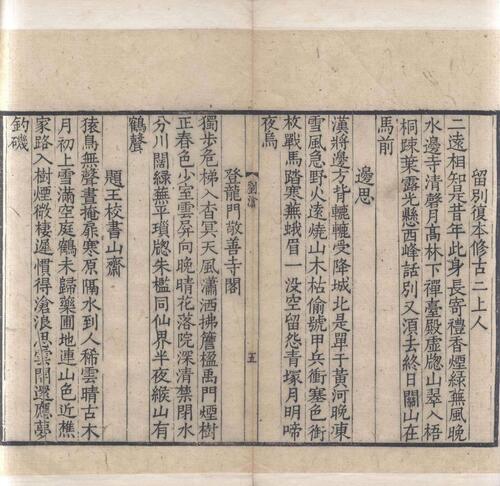 留別復本修古二上人
二遠相知是昔年此身長寄禮香煙綠蕪風晚
水邊寺清磬月高林下禪臺殿虛牕山翠入梧
桐踈葉露光懸西峰話別又須去終日關山在
馬前
邊思
漢將邊方背轆轤受降城北是單于黃河晚凍
雪風急野火遠燒山木枯偷號甲兵衝塞色銜
枚戰馬踏寒蕪蛾眉一没空留怨青塚月明啼
夜烏
劉滄
五
登龍門敬善寺閣
獨步危梯入杳冥天風瀟洒拂簷楹禹門煙樹
正春色少室雲屏向晚晴花落院深清禁閉水
分川闊綠蕪平瑣牕朱檻同仙界半夜緱山有
鶴聲
題王校書山齋
猿鳥無聲晝掩扉寒原隔水到人稀雲晴古木
月初上雪滿空庭鶴未歸藥圃地連山色近樵
家路入樹煙微棲遲慣得滄浪思雲閣還應夢
釣磯